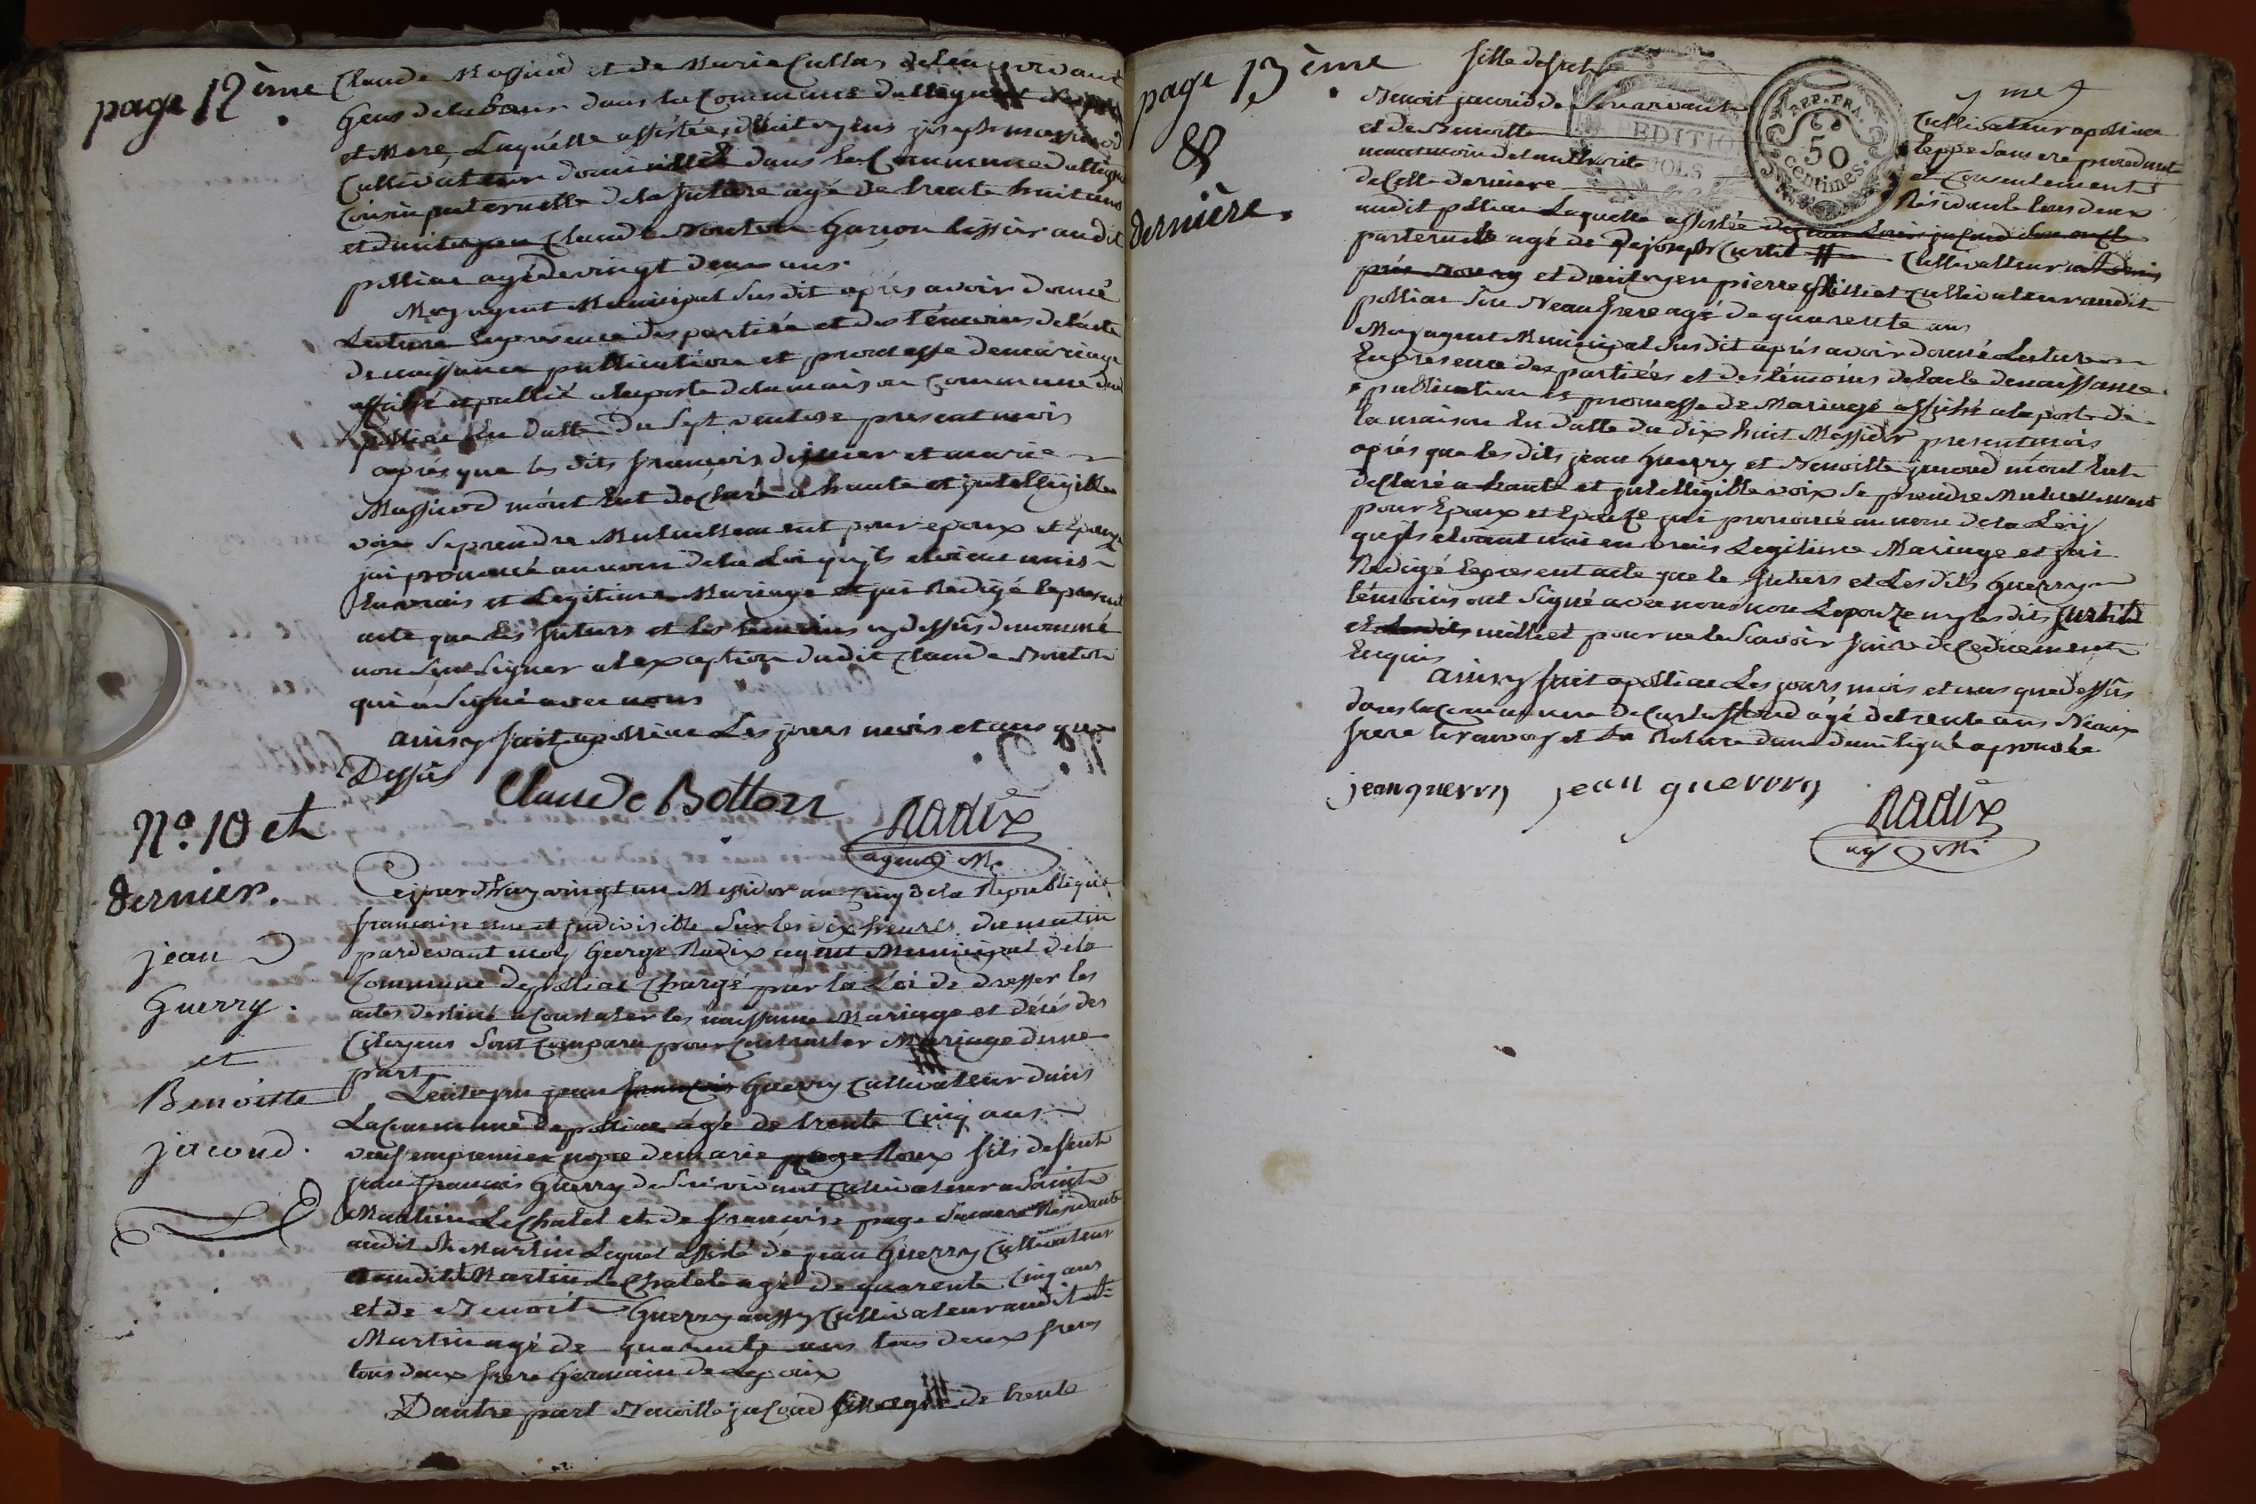 page 12ème
Claude Massiud et de Marie Cullas de leur vivant
Gens de labour dans la Commune
et Mere, Laquélle assistée du citoyens joseph massiud
Cullivateur domicillié dans la Commune dattigna
Cousin paternelle de la future agé de trente huit ans
et du citoyen Claude Bouton Garçon tissier audit
polliac agé de vingt deux ans.
Moy agent Municipal Susdit aprés avoir donné
Lecture En presence des parties et des témoins de lácte
de naissance publication et promesse de mariage
affiché et publié a la porte de la maison Commune dud
polliac En datte Du Sept ventose present mois
aprés que les dits françois et marie
Massiud mónt Eut declaré a haute et jntelligible
voix Se prendre Mutuellement pour epoux et Epouze
jai prononcé au nom de la Loi quils etoient unis
En vrais et Legitime Mariage et jai Redigé le present
acte que les futurs et les temoins cy dessus denommé
non Sçu Signer a lexception dudit Claude Bouton
qui a Signé avec nous
ainsy fait a polliac Les jours mois et ans que
Dessus
Claude Botton
Radix
agent M.
No. 10 et
dernier.
jean
Guerry.
et
Benoitte
jacoud.
Cejourdhuy vingt un Messidor an cinq de la Republique
francaise une et jndivisible Sur les dix heures du matin
pardevant moy George Radix agent Municipal de la
Commune de polliac Chargé par la Loi de dresser les
actes destiné a Constater les naissance Mariage et décés des
Citoyens Sont Comparu pour Contracter Mariage dune
part
Le citoyen jean françois Guerry Cullivateur dans
La Commune de polliac agé de trente Cinq ans
veuf en premier nopce de marie Roux fils de feut
jean françois Guerry de Son vivant Cullivateur a Saint
Martin Le Chatel et de francoise page Sa mere Residante
audit St Martin Lequel assisté de jean Guerry Cullivateur
audit St Martin Le Chatel agé de quarente Cinq ans
et de Benoit Guerry aussy Cullivateur audit St
Martin agé de quarente ans tous deux freres
tous deux frere Germain de Lepoux
Dautre part Benoitte jacoud fille agée de trente
page 13ème
&
dernière.
fille de feut
Benoit jacoud de Son vivant
et de Benoitte
de Cette derniere
REP. FRA.
50
Centimes.
EDITIO
SOLS
Cullivateur a polliac
et Consentement
Résidante tous deux
audit polliac Laquelle assistée de
parternelle agé de de joseph Curtil Cullivatteur
et du citoyen pierre Milliet Cullivateur audit
polliac Son Beau frere agé de quarente ans
Moy agent Municipal Susdit aprés avoir donné Lecture
En presence des parties et des témoins de lacte de naissance
publication et promesse de Mariage affiché a la porte de
la maison En datte du dix huit Messidor present mois
aprés que les dits jean Guerry et Benoitte jacoud mónt Eut
declaré a haute et jntelligible voix Se prendre Mutuellement
pour Epoux et Epouze jai prononcé au nom de la Loy
quils etoient uni en vrais Legitime Mariage et jai
Redigé le present acte que le futurs et Les dits Guerry
témoins ont Signé avec nous non Lepouze ny les dits Curtil
et milliet pour ne le Scavoir faire de Ce duement
Enquis
ainsy fait a polliac Les jours mois et ans que dessus
dans la Commune de Curtafond agé de trente ans Beaux
frere le renvoy et La Rature dune demi ligne aprouvée
jean guerry jean guerrry
Radix
ag M